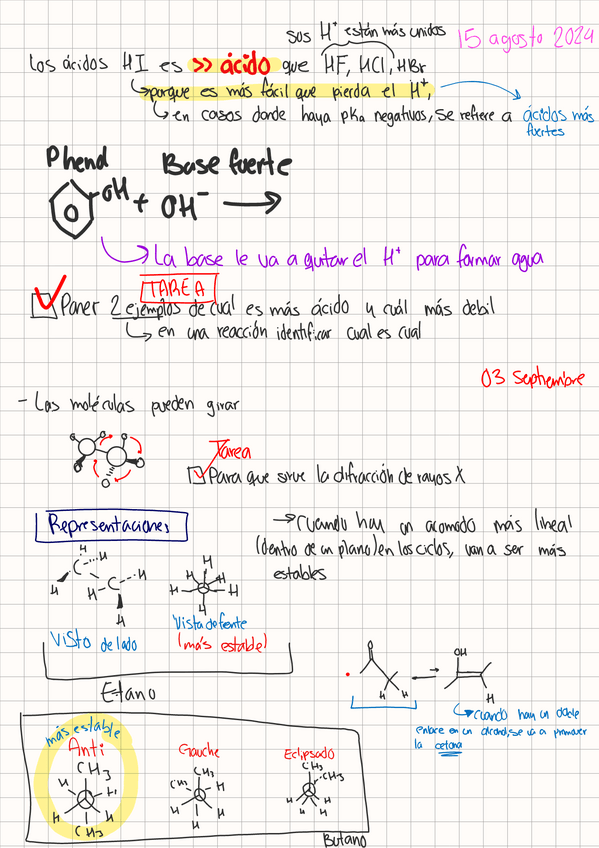 sus H⁺ están más unidos
15 agosto 2024
Los ácidos HI es >> ácido que HF, HCl, HBr
porque es más fácil que pierda el H⁺,
en casos donde haya pKa negativos, se refiere a ácidos más
fuertes
Phenol Base fuerte
OH + OH⁻
La base le va a quitar el H⁺ para formar agua
TAREA
Poner 2 ejemplos de cual es más ácido y cuál más debil
en una reacción identificar cual es cual
03 Septiembre
- Las moléculas pueden girar
Tarea
Para que sirve la difracción de rayos X
Representaciones
cuando hay un acomodo más lineal
(dentro de un plano) en los ciclos, van a ser más
estables
H H C H
H H-C H
H
H H H
H H
H
Visto de lado
Vista de frente
(más estable)
Etano
O
H H
OH
H
cuando hay un doble
enlace en un alcohol, se va a promover
la cetona
más estable
Anti
Gauche
Eclipsado
CH₃
H H
H H
CH₃
CH₃
CH₃ H
H H
H
CH₃
CH₃
H H
H H
Butano